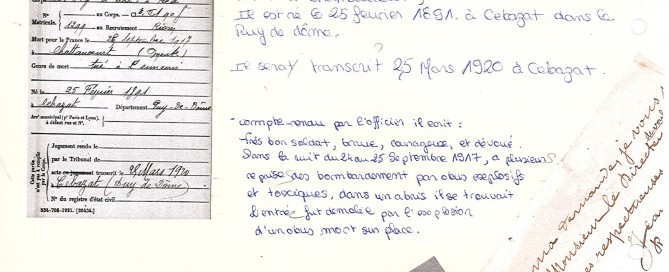 au Corps.
N°
Matricule.
au Recrutement Riom
Mort pour la France le 25 septembre 1917
à Chattancourt
Genre de mort tué à l'ennemi
Né le 25 Février 1891
à Cébazat Département Puy-de-Dôme
Arr municipal (pr Paris et Lyon),
à défaut rue et N°.
Jugement rendu le
par le Tribunal de
acte ou jugement transcrit le 25 Mars 1920
à Cébazat (Puy de Dôme)
N° du registre d'état civil
534-708-1921. [26434.]
Il est né le 25 février 1891. à Cebazat dans le
Puy de dôme.
?
Il seray transcrit 25 Mars 1920 à Cebazat.
- compte rendu par l'officier il ecrit :
très bon soldat, brave, courageux, et dévoué.
Dans la nuit du 24 au 25 Septembre 1917, a plusieurs
reprise des bombardement par obus explosifs
et toxciques, dans un abris il se trouvait
l'entrée fut demolie par l'explosion
d'un obus mort sur place.
ma demande, je vous,
Monsieur le Directeur
respectueuses